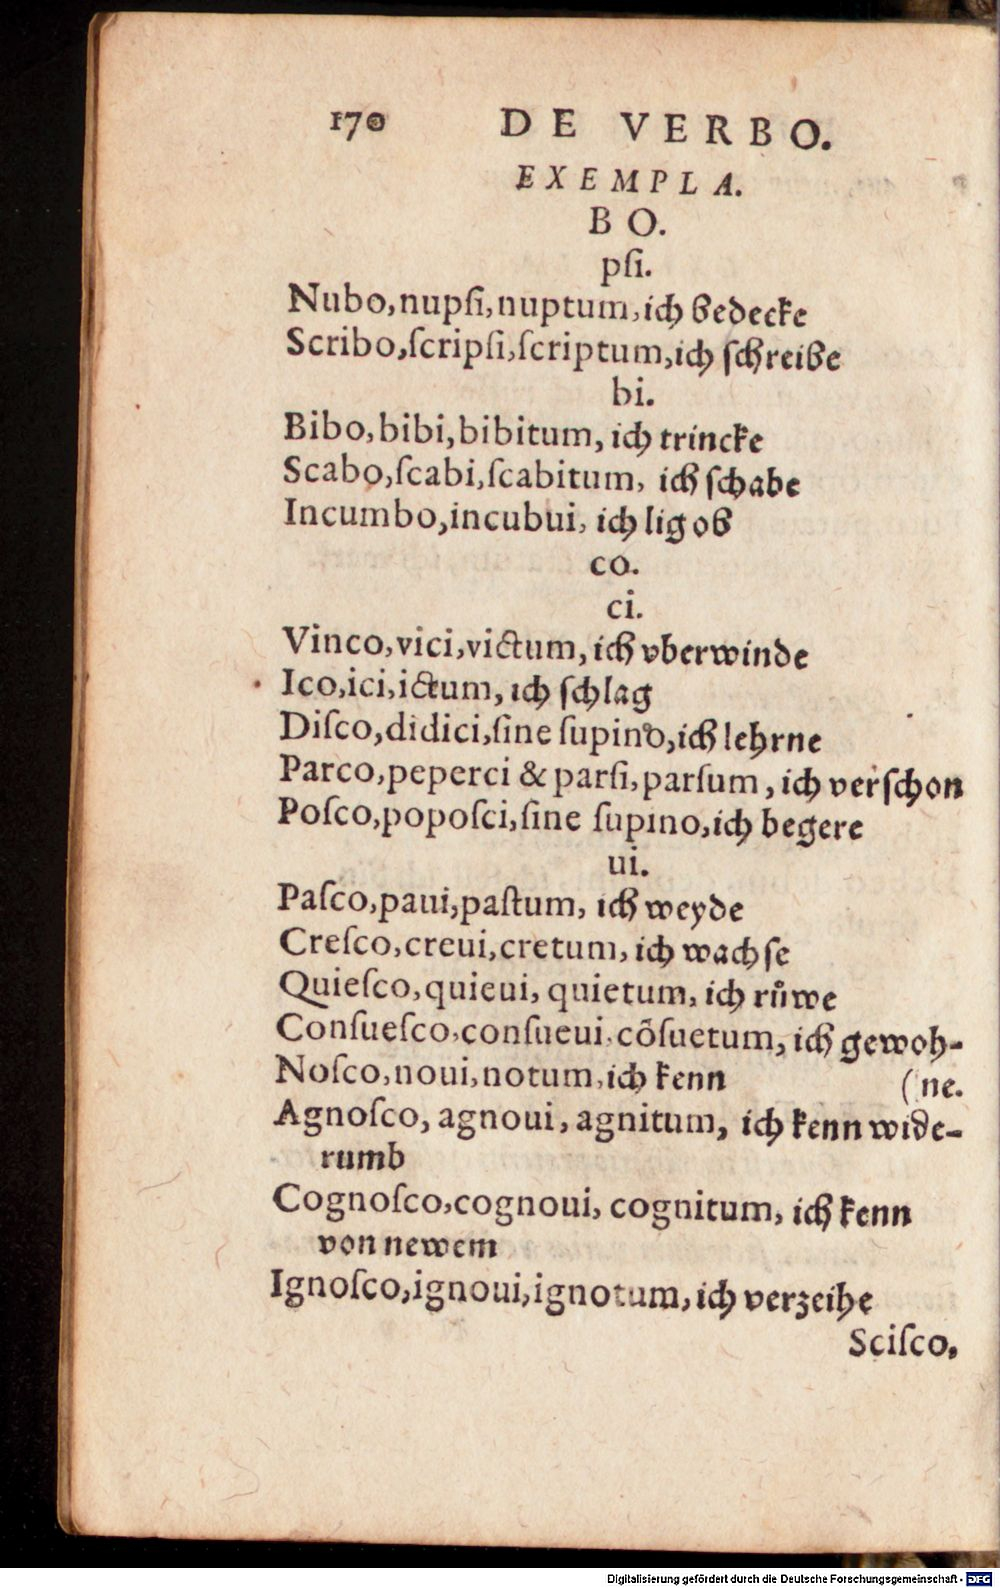 170 DE VERBO.
EXEMPLA.
BO.
pſi.
Nubo, nupſi, nuptum, ich bedecke
Scribo, ſcripſi, ſcriptum, ich ſchreibe
bi.
Bibo, bibi, bibitum, ich trincke
Scabo, ſcabi, ſcabitum, ich ſchabe
Incumbo, incubui, ich lig ob
co.
ci.
Vinco, vici, victum, ich vberwinde
Ico, ici, ictum, ich ſchlag
Diſco, didici, ſine ſupino, ich lehrne
Parco, peperci & parſi, parſum, ich verſchon
Poſco, popoſci, ſine ſupino, ich begere
ui.
Paſco, paui, paſtum, ich weyde
Creſco, creui, cretum, ich wachſe
Quieſco, quieui, quietum, ich růwe
Conſueſco, conſueui, cõſuetum, ich gewoh-
Noſco, noui, notum, ich kenn (ne.
Agnoſco, agnoui, agnitum, ich kenn wide-
rumb
Cognoſco, cognoui, cognitum, ich kenn
von newem
Ignoſco, ignoui, ignotum, ich verzeihe
Sciſco,
Digitalisierung gefördert durch die Deutsche Forschungsgemeinschaft - DFG